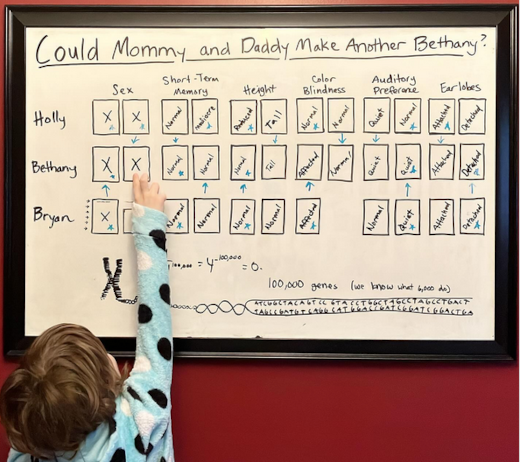 Could Mommy and Daddy Make Another Bethany?
Sex Short-Term Memory Height Color Blindness Auditory Preference Earlobes
Holly X X Normal Mediocre Reduced Tall Normal Normal Quiet Normal Attached Detached
Bethany X X Normal Normal Normal Tall Affected Normal Quiet Quiet Attached Detached
Bryan X Normal Normal Normal Normal Affected Normal Quiet Attached Detached
100,000 = 4^-100,000 = 0.
100,000 genes (we know what 6,000 do)